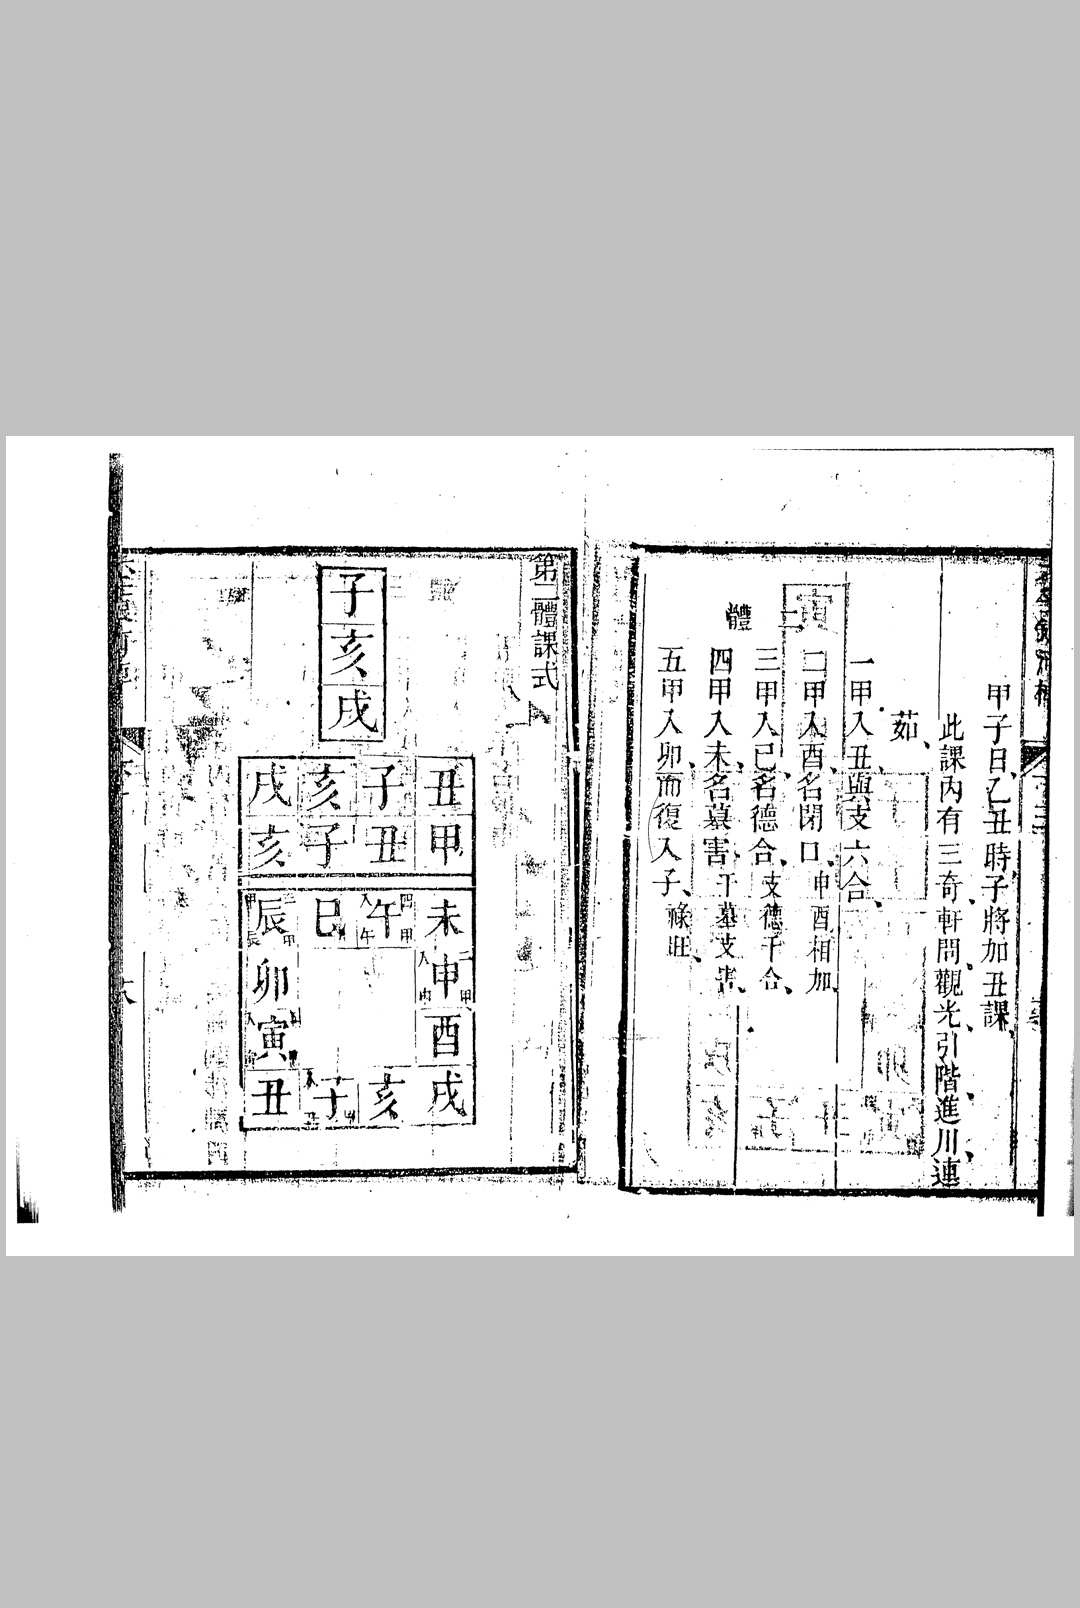 甲子日、乙丑時子將加丑課、
此課內有三奇軒問、觀光、引階、進川、連
茹、
一甲入丑、與支六合、
二甲入酉、名閉口、申酉相加、
三甲入巳、名德合、支德干合、
四甲入未、名墓害、干墓支害、
五甲入卯而復入子、祿旺、
體
第二體課式
子
亥
戌
戌 亥 子 丑
亥 子 丑 甲
辰 巳 午 未
卯 申
寅 酉
丑 子 亥 戌